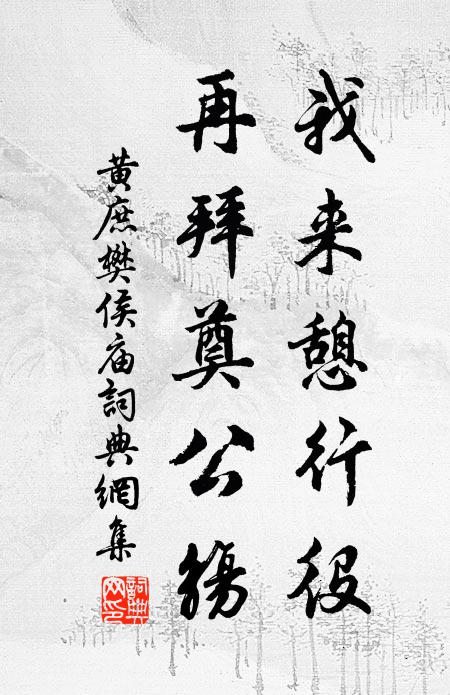 我来憩行役
再拜奠公觞
黄庶樊侯庙詞典網集
詞典网印